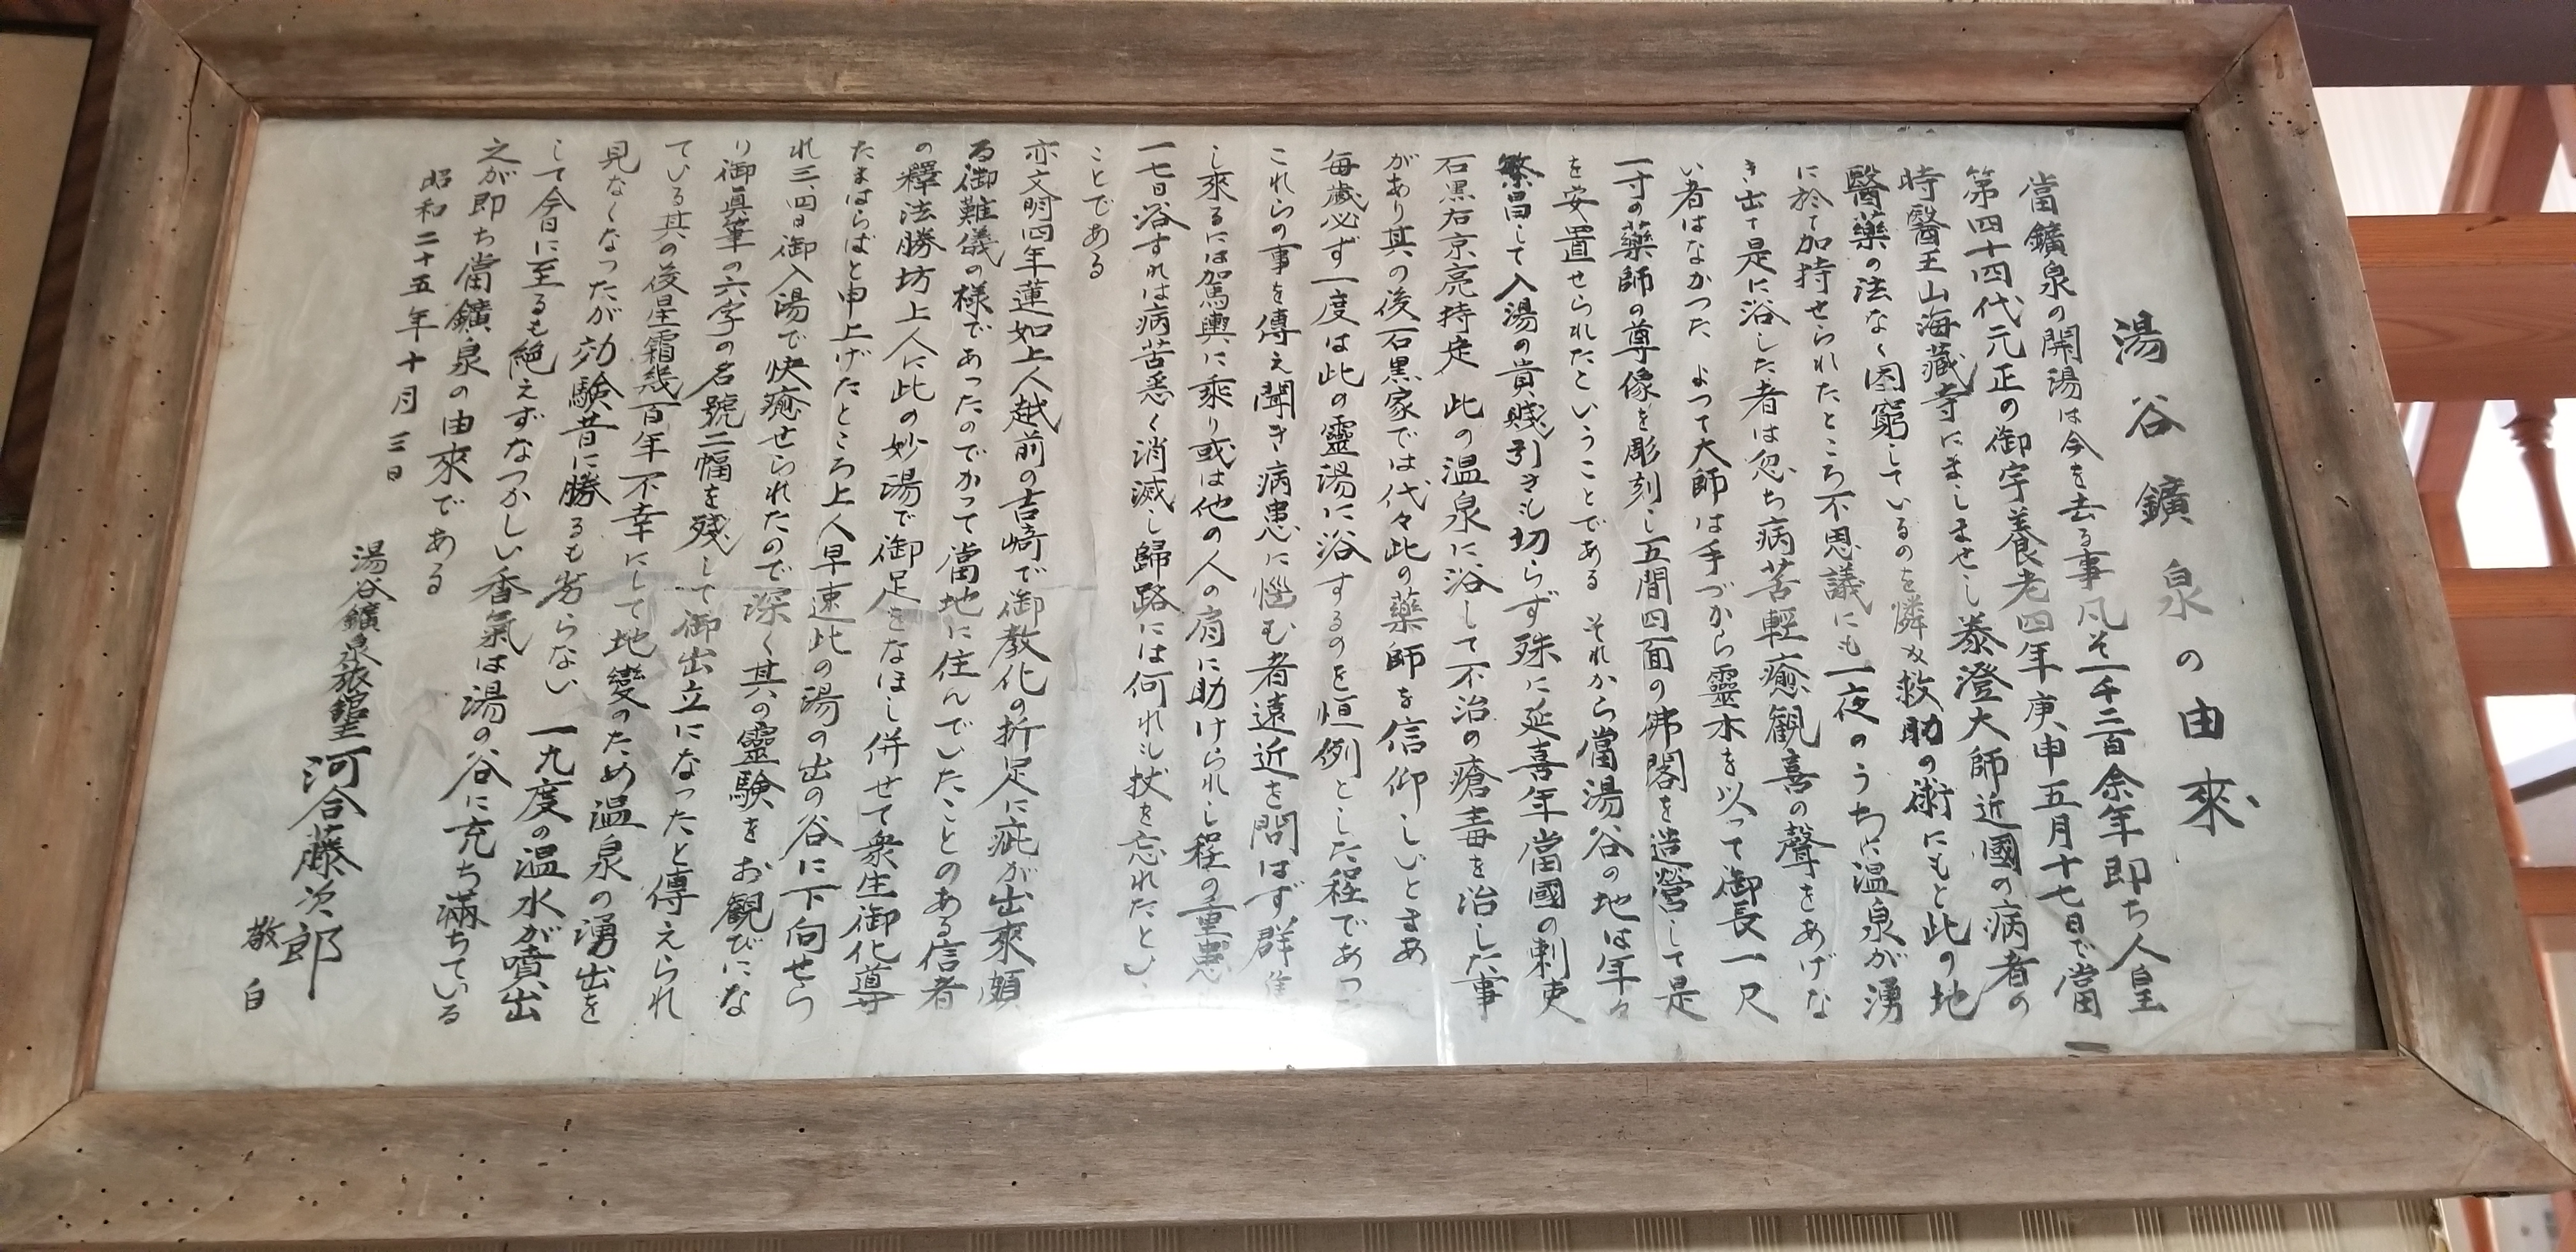 湯谷鑛泉の由來
當鑛泉の開湯は今を去る事凡そ一千二百余年即ち人皇
第四十四代元正の御宇養老四年庚申五月十七日で當
時醫王山海藏寺にましませし泰澄大師近國の病者の
醫藥の法なく困窮しているのを憐み救助の術にもと此の地
に於て加持せられたところ不思議にも一夜のうちに温泉が湧
き出て是に浴した者は忽ち病苦輕癒観喜の聲をあげな
い者はなかった よって大師は手づから靈木を以って御長一尺
一寸の藥師の尊像を彫刻し五間四面の佛閣を造營して是
を安置せられたということである それから當湯谷の地は年々
繁昌して入湯の貴賤引きも切らず殊に延喜年當國の刺吏
石黒右京亮持定 此の温泉に浴して不治の瘡毒を治した事
があり其の後石黒家では代々此の藥師を信仰しいとまあ
毎歳必ず一度は此の靈湯に浴するのを恒例とした程であっ
これらの事を傳え聞き病患に惱む者遠近を問はず群集
し來るには駕輿に乘り或は他の人の肩に助けられし程の重患
一七日浴すれは病苦悉く消滅し歸路には何れも扙を忘れたとい
ことである
亦文明四年蓮如上人越前の吉崎で御教化の折足に疵が出來頗
る御難儀の様であったのでかって當地に住んでいたことのある信者
の釋法勝坊上人に此の妙湯で御足をなほし併せて衆生御化導
たまはらばと申上げたところ上人早速此の湯の出の谷に下向せら
れ三、四日御入湯で快癒せられたので深く其の靈験をお観びにな
り御眞筆の六字の名號二幅を残して御出立になったと傳えられ
ている其の後星霜幾百年不幸にして地變のため温泉の湧出を
見なくなったが効験昔に勝るも劣らない 一九度の温水が噴出
して今日に至るも絶えずなつかしい香氣は湯の谷に充ち滿ちている
之が即ち當鑛泉の由來である
昭和二十五年十月三日
湯谷鑛泉旅舘主 河合藤次郎
敬白